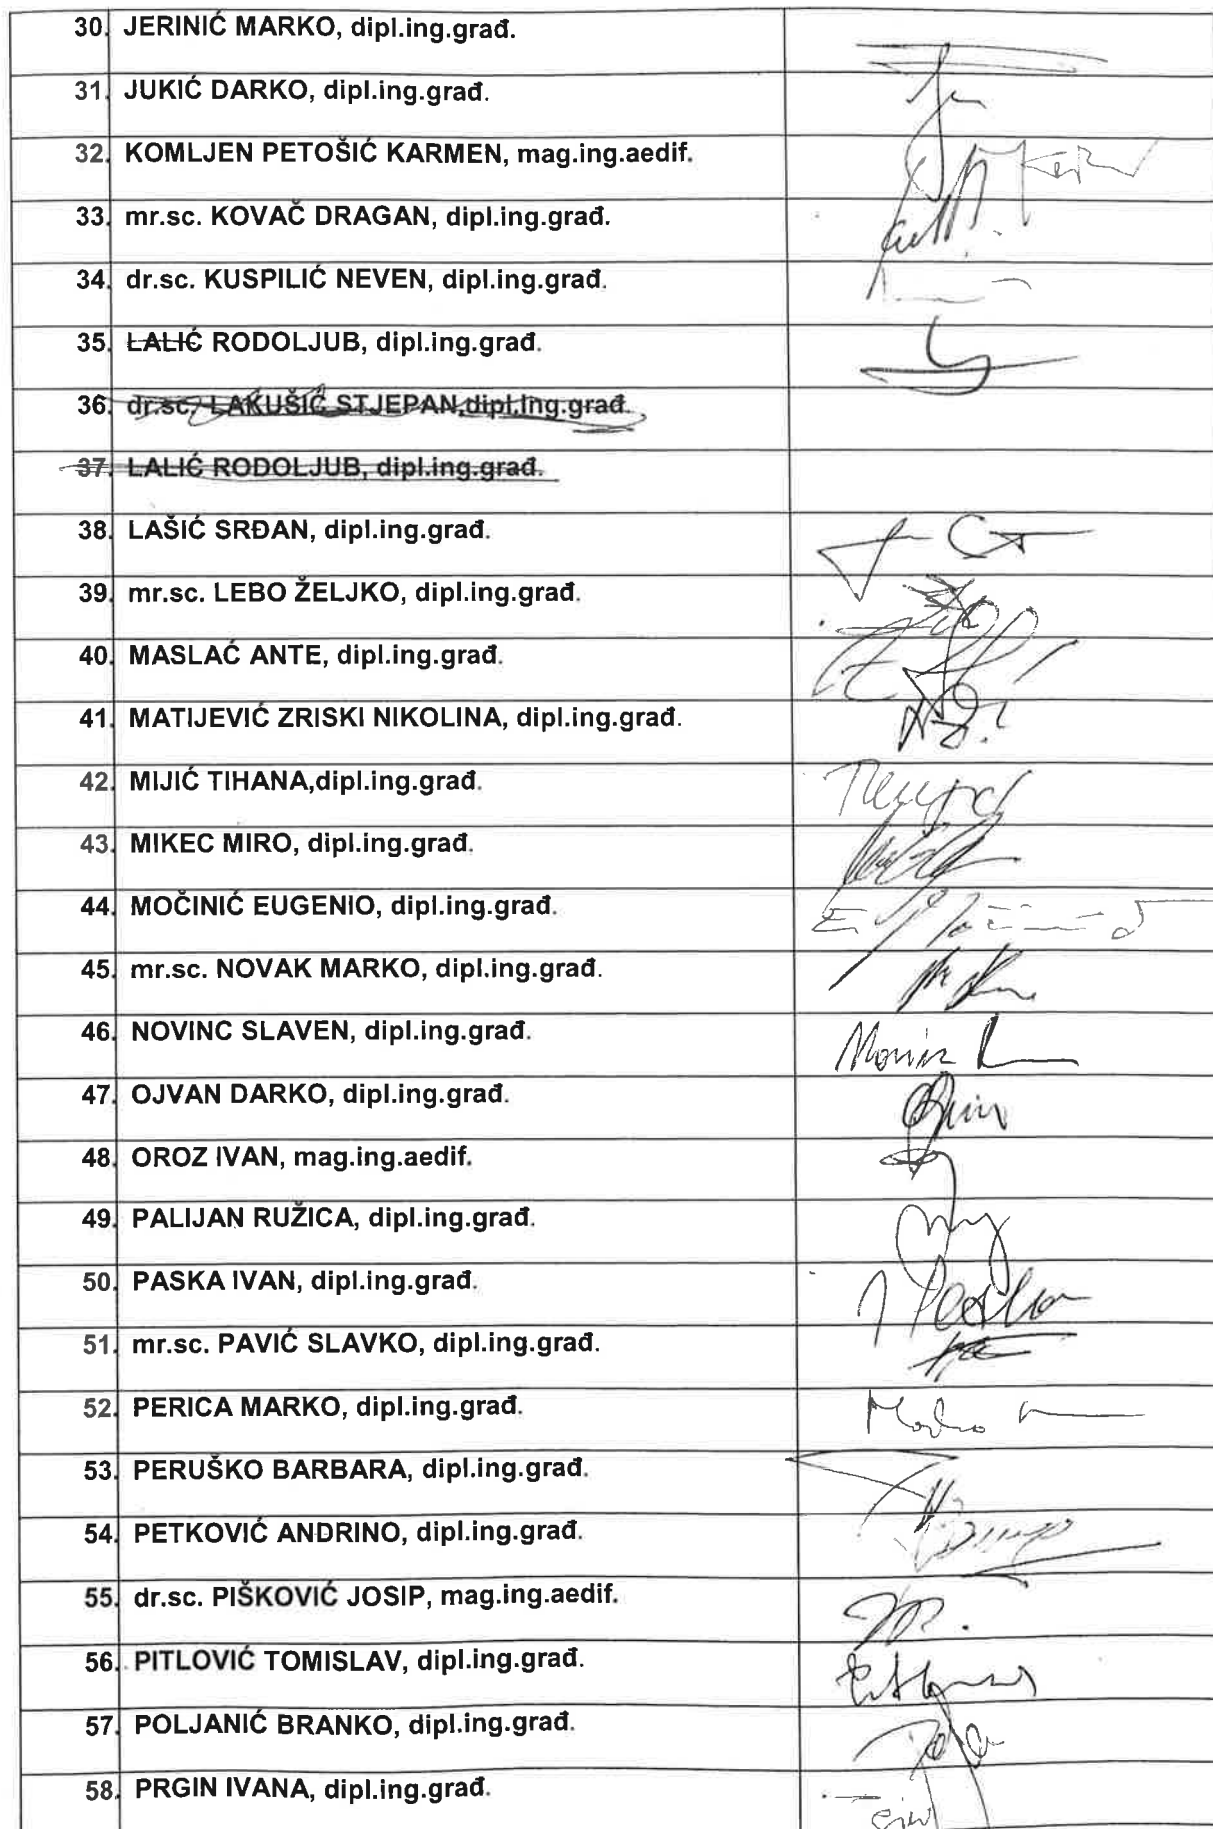 30. JERINIĆ MARKO, dipl.ing.građ.
31. JUKIĆ DARKO, dipl.ing.građ.
32. KOMLJEN PETOŠIĆ KARMEN, mag.ing.aedif.
33. mr.sc. KOVAČ DRAGAN, dipl.ing.građ.
34. dr.sc. KUSPILIĆ NEVEN, dipl.ing.građ.
35. LALIĆ RODOLJUB, dipl.ing.građ.
36. dr.sc. LAKUŠIĆ STJEPAN,dipl.ing.građ.
37. LALIĆ RODOLJUB, dipl.ing.građ.
38. LAŠIĆ SRĐAN, dipl.ing.građ.
39. mr.sc. LEBO ŽELJKO, dipl.ing.građ.
40. MASLAĆ ANTE, dipl.ing.građ.
41. MATIJEVIĆ ZRISKI NIKOLINA, dipl.ing.građ.
42. MIJIĆ TIHANA,dipl.ing.građ.
43. MIKEC MIRO, dipl.ing.građ.
44. MOČINIĆ EUGENIO, dipl.ing.građ.
45. mr.sc. NOVAK MARKO, dipl.ing.građ.
46. NOVINC SLAVEN, dipl.ing.građ.
47. OJVAN DARKO, dipl.ing.građ.
48. OROZ IVAN, mag.ing.aedif.
49. PALIJAN RUŽICA, dipl.ing.građ.
50. PASKA IVAN, dipl.ing.građ.
51. mr.sc. PAVIĆ SLAVKO, dipl.ing.građ.
52. PERICA MARKO, dipl.ing.građ.
53. PERUŠKO BARBARA, dipl.ing.građ.
54. PETKOVIĆ ANDRINO, dipl.ing.građ.
55. dr.sc. PIŠKOVIĆ JOSIP, mag.ing.aedif.
56. PITLOVIĆ TOMISLAV, dipl.ing.građ.
57. POLJANIĆ BRANKO, dipl.ing.građ.
58. PRGIN IVANA, dipl.ing.građ.